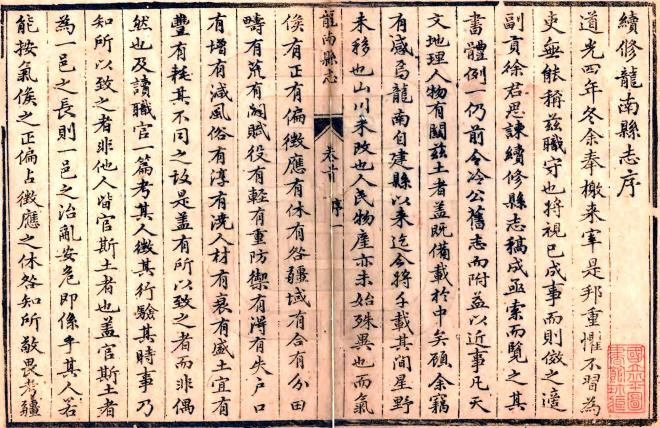 續修龍南縣志序
道光四年冬余奉檄來宰是邦重懼不習爲
吏無能稱茲職守也將視已成事而則傚之適
副貢徐君思諫續修縣志稿成亟索而覽之其
書體例一仍前令冷公舊志而附益以近事凡天
文地理人物有關茲土者蓋既備載於中矣顧余竊
有感焉龍南自建縣以來迄今將千載其間星野
未移也山川未改也人民物產亦未始殊異也而氣
龍南縣志
卷首
序一
候有正有偏徵應有休有咎疆域有合有分田
疇有荒有闢賦役有輕有重防禦有得有失戶口
有增有減風俗有淳有澆人材有衰有盛土宜有
豐有耗其不同之故是蓋有所以致之者而非偶
然也及讀職官一篇考其人徵其行驗其時事乃
知所以致之者非他人皆官斯土者也蓋官斯土者
為一邑之長則一邑之治亂安危即係乎其人若
能按氣候之正偏占徵應之休咎知所敬畏考疆